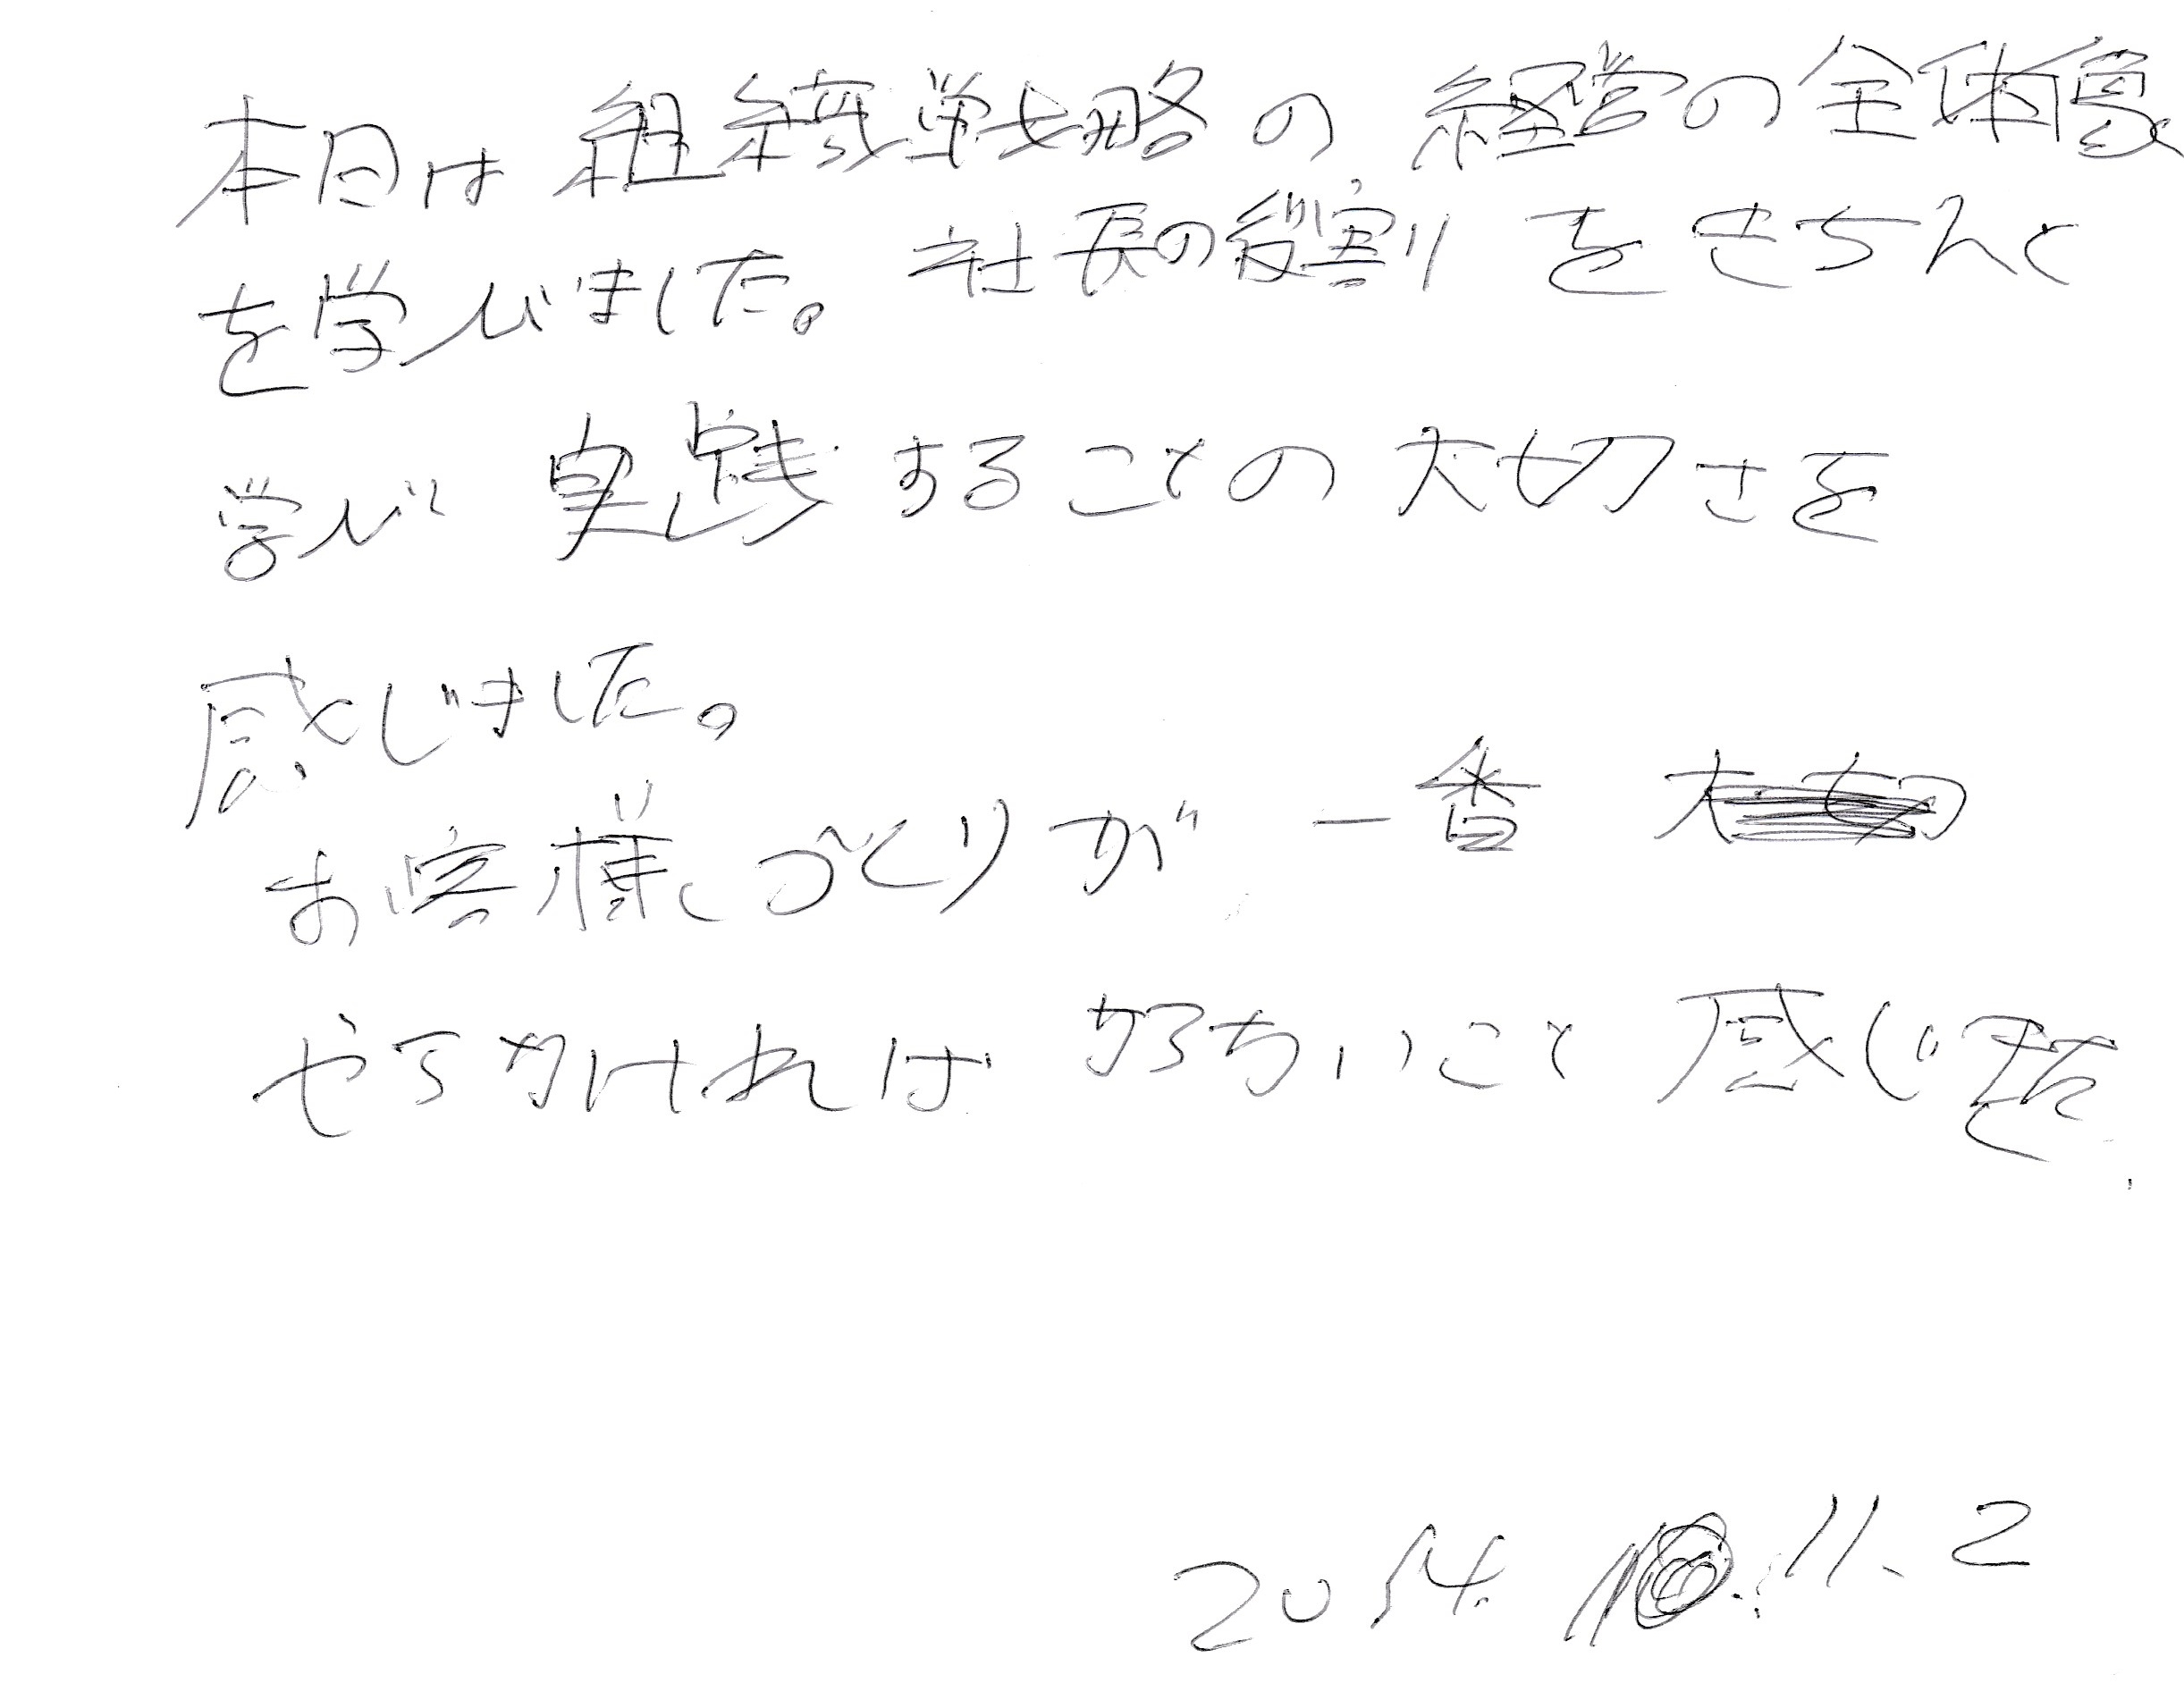 本日は組織戦略の経営の全体像
を学びました。社長の役割りをきちんと
学び実践することの大切さを
感じました。
お客様づくりが一番
やらなければならないこと感じ
2014. 11. 2